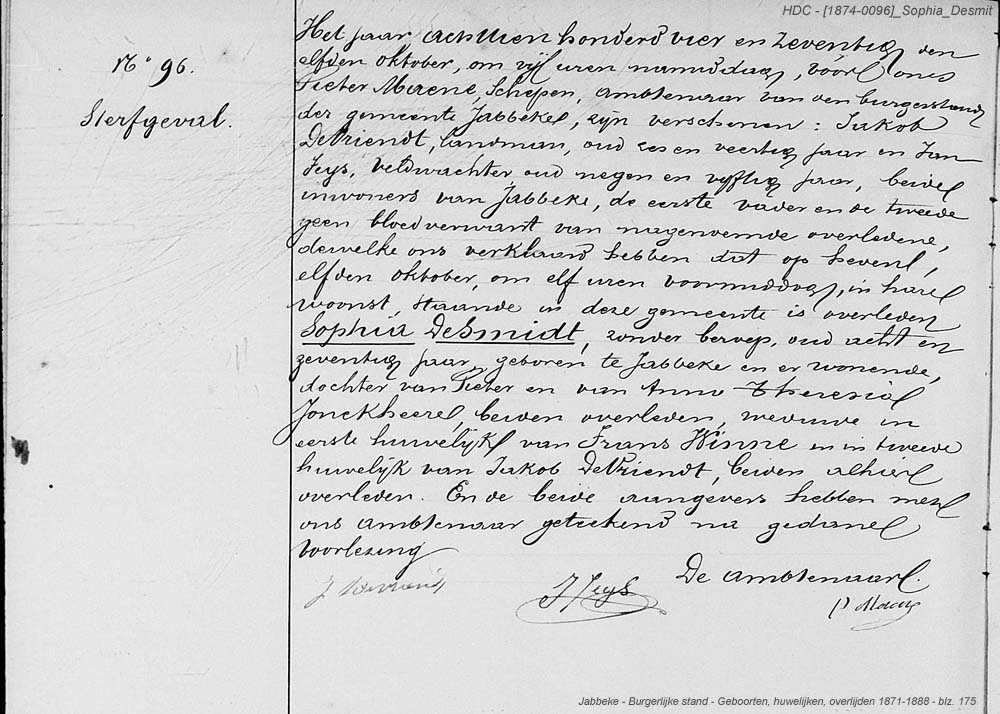 HDC - [1874-0096]_Sophia_Desmit
N° 96.
Sterfgeval.
Het jaar achttien honderd vier en zeventig den
elfden Oktober, om vijf uren namiddag, voor ons
Pieter Maene, Schepen, ambtenaar van den burgerstand
der gemeente Jabbeke, zyn verschenen : Jakob
DeVriendt, landman, oud zes en veertig jaar en Jan
Feys, veldwachter oud negen en vyftig jaar, beide
inwoners van Jabbeke, de eerste vader en de tweede
geen bloedverwant van nagenoemde overledene,
dewelke ons verklaard hebben dat op heden,
elfden Oktober, om elf uren voormiddag, in hare
woonst, staande in deze gemeente is overleden
Sophia DeSmidt, zonder beroep, oud acht en
zeventig jaar, geboren te Jabbeke en er wonende,
dochter van Pieter en van Anna Theresia
Jonckheere, beiden overleden, weduwe in
eerste huwelijk van Frans Winne en in tweede
huwelijk van Jakob DeVriendt, beiden alhier
overleden. En de beide aangevers hebben met
ons ambtenaar geteekend na gedane
voorlezing
De Ambtenaar.
J Feys
P Maene
Jabbeke - Burgerlijke stand - Geboorten, huwelijken, overlijden 1871-1888 - blz. 175